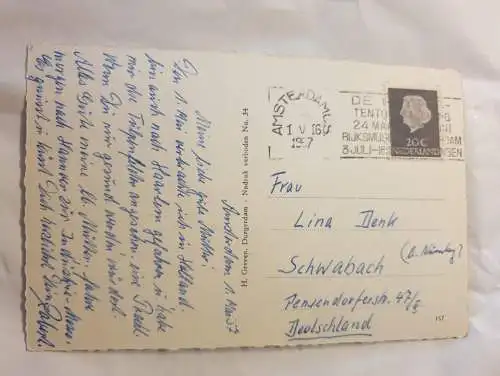 Amsterdam 1. Mai 57
Meine liebe gute Mutter.
Den 1. Mai verbrachte ich in Holland.
bin auch nach Haarlem gefahren u. habe
mir die Tulpenfelder angesehen. eine Pracht.
Wenn Du nur gesund werden würdest.
Alles Gute meine lb. Mutter. fahre
morgen nach Hannover zur Industrie-Messe.
herzlichst Dein
H. Greven, Durgerdam - Nadruk verboden No. 34
AMSTERDAM
1 V 16
1957
DE
TENTO
24 MA
RIJKSMUS DAM
3 JULI-
20 C
NEDERLAND
Frau
Lina Denk
Schwabach
(b. Nürnberg)
Penzendorferstr. 47/
Deutschland
157